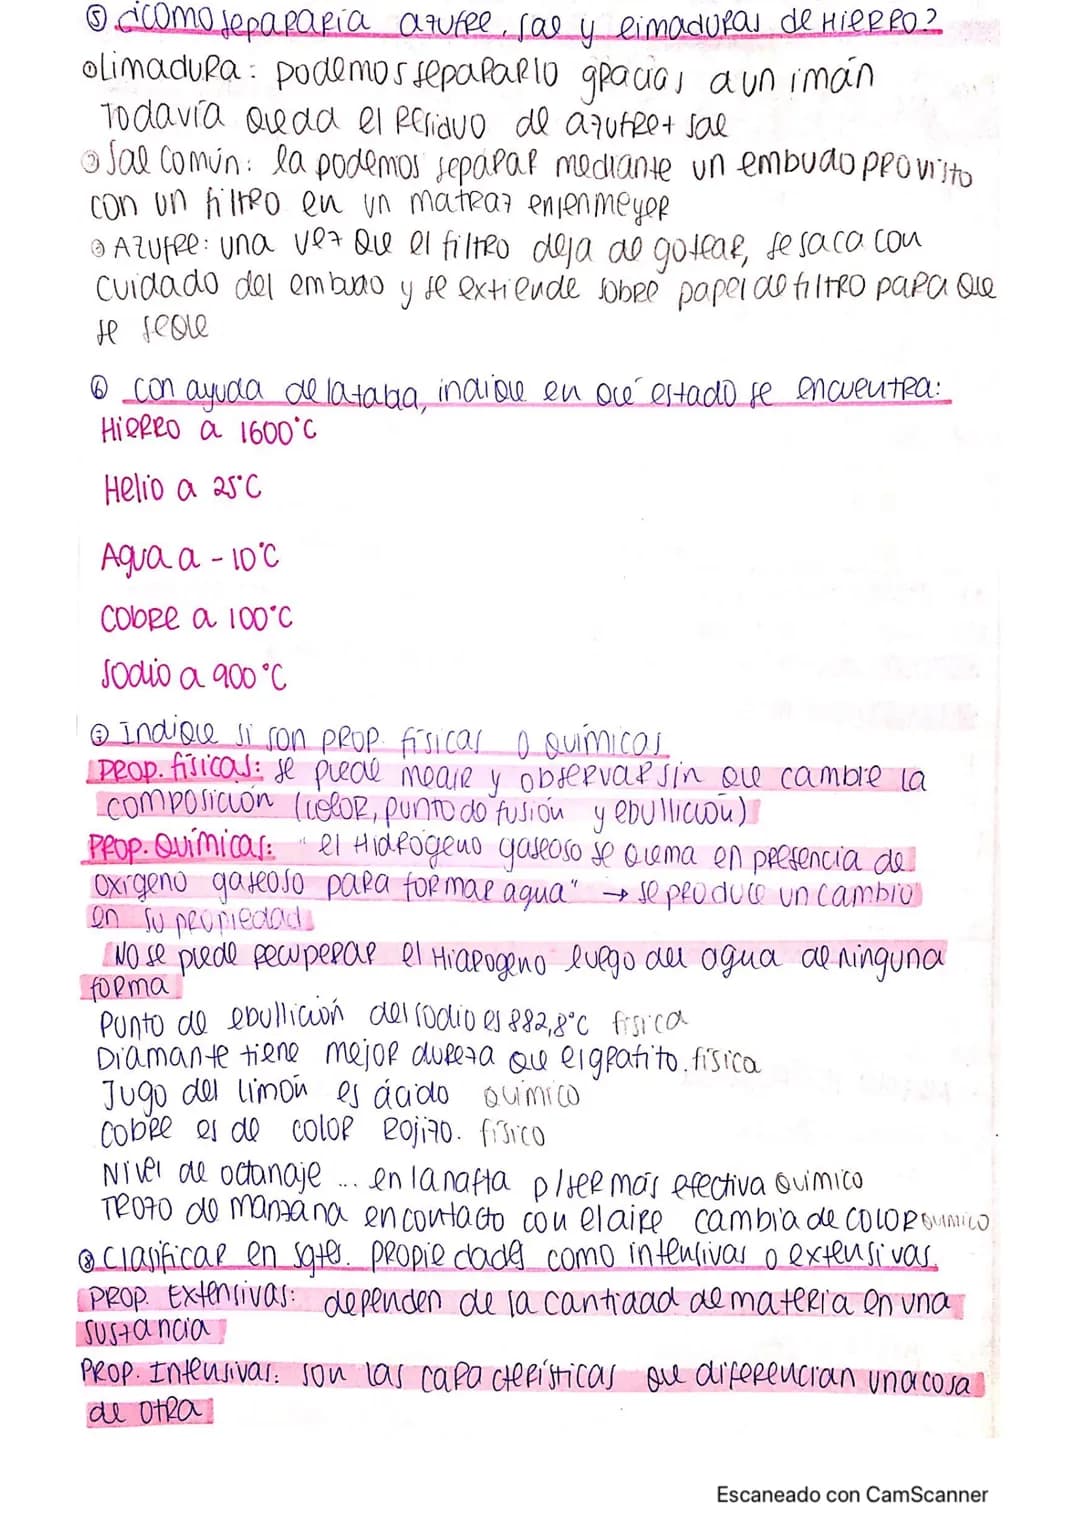 ⑤ ¿cómo separaría azufre, sal y limaduras de Hierro?
① Limadura: podemos separarlo gracias a un imán
Todavía queda el residuo de azufre + sal
② Sal común: la podemos separar mediante un embudo provisto
con un filtro en un matraz enlenmeyer
③ Azufre: una vez que el filtro deja de gotear, se saca con
cuidado del embudo y se extiende sobre papel de filtro para que
se seque
⑥ con ayuda de la tabla, indique en qué estado se encuentra:
Hierro a 1600°C
Helio a 25°C
Agua a -10°C
Cobre a 100°C
Sodio a 900°C
⑦ Indique si son prop. físicas o químicas
Prop. físicas: se puede medir y observar sin que cambie la
composición (color, punto do fusión y ebullición)
Prop. Químicas: "el Hidrógeno gaseoso se quema en presencia de
oxígeno gaseoso para formar agua" → se produce un cambio
en su propiedad
No se puede recuperar el Hidrogeno luego del agua de ninguna
forma
Punto de ebullición del sodio es 882,8°C física
Diamante tiene mejor dureza que el grafito. física
Jugo del limón es ácido químico
Cobre es de color rojizo. físico
Nivel de octanaje ... en la nafta p/ser más efectiva químico
Trozo de manzana en contacto con el aire cambia de color químico
⑧ Clasificar en sgtes. propiedades como intensivas o extensivas.
Prop. Extensivas: dependen de la cantidad de materia en una
sustancia
Prop. Intensivas: son las características que diferencian una cosa
de otra
Escaneado con CamScanner